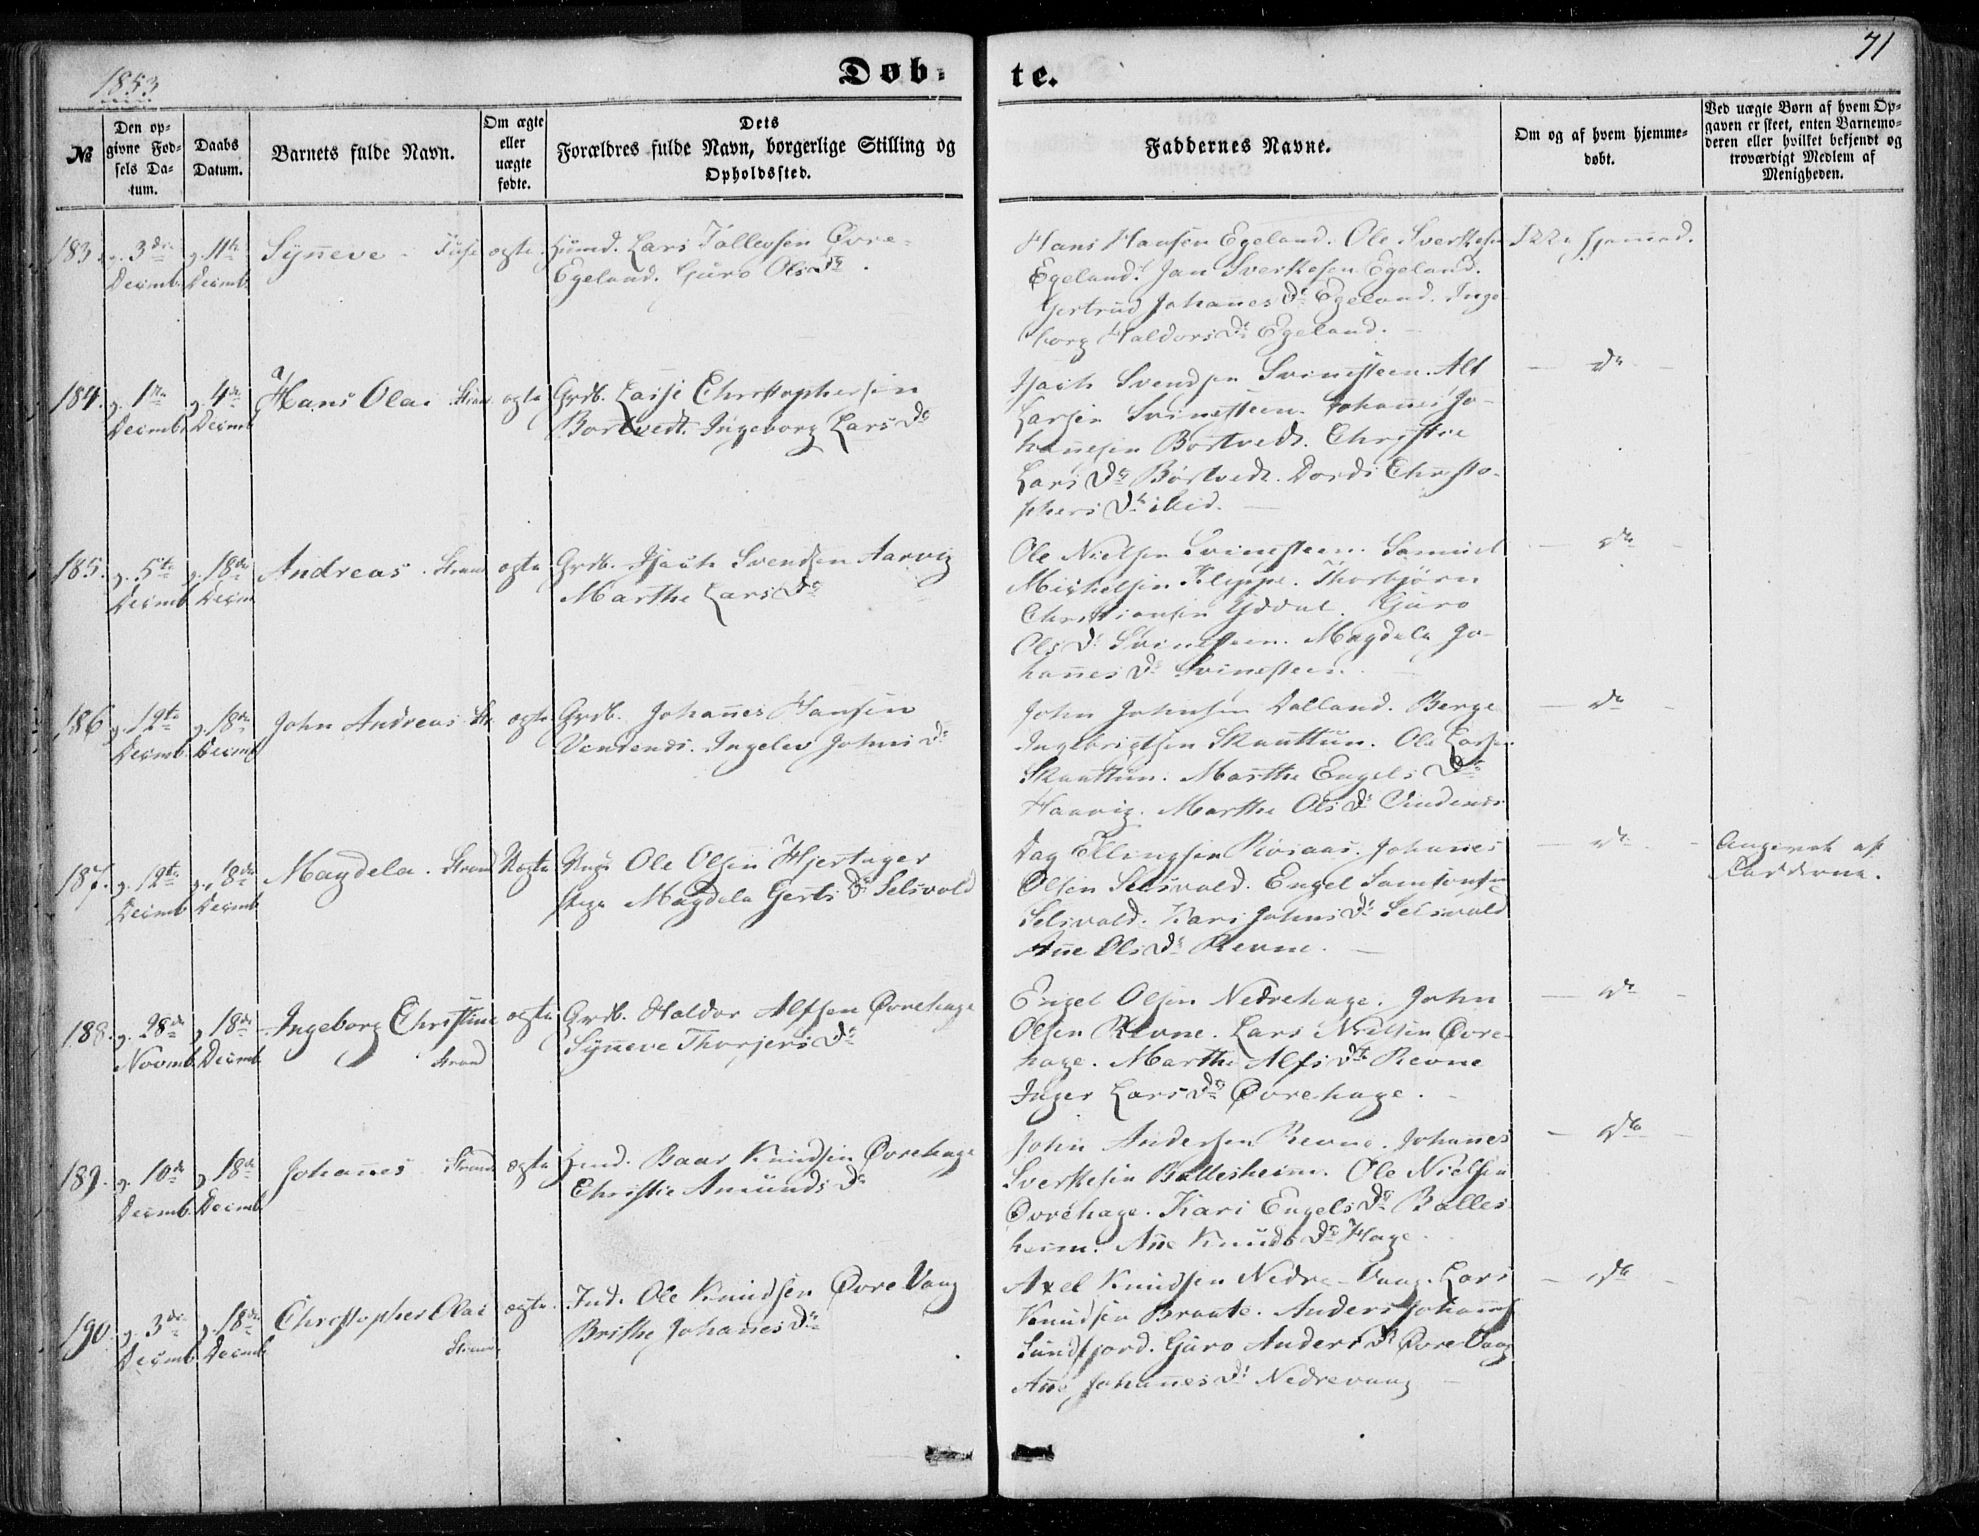 1853
Døb-
te.
71
№
Den op-
givne Fød-
sels Da-
tum.
Daabs
Datum.
Barnets fulde Navn.
Om ægte
eller
uægte
fødte.
Dets
Forældres fulde Navn, borgerlige Stilling og
Opholdssted.
Faddernes Navne.
Om og af hvem hjemme-
døbt.
Ved uægte Børn af hvem Op-
gaven er skeet, enten Barnemo-
deren eller hvilket bekjendt og
troværdigt Medlem af
Menigheden.
183. g. 3die Decemb. g. 11te Decemb. Syneve ægte. Huusmd. Lars Tollevsen Øvre-
Egeland. Guro Olsdr.
Hans Hansen Egeland. Ole Sverkesen
Egeland. Jan Sverkesen Egeland.
Gertrud Johanesdr Egeland. Inge-
borg Haldorsdr Egeland.
Ikke hjemmed.
184. g. 1ste Decemb. g. 4de Decemb. Hans Olai Strand ægte Grdb. Lasse Christophersen
Bortvedt. Ingeborg Larsdr
Isach Svendsen Svinesteen. Alf
Larsen Svinesteen. Johanes Jo-
hanesen Bortvedt. Christie
Larsdr Børtvedt. Dordi Christo-
phersdr ibid.
do
185. g. 5te Decemb. g. 18de Decemb. Andreas. Strand ægte Grdb. Isach Svendsen Aarvig
Marthe Larsdr
Ole Nielsen Svinesteen. Samuel
Michelsen Kleppe. Thorbjörn
Christiansen Guro
Olsdr Svinesteen. Magdela Jo-
hanesdr Svinesteen.
do
186 g. 12te Decemb. g. 18de Decemb. John Andreas Str. ægte Grdb. Johanes Hansen
Vindenes. Ingelev Johnsdr
John Johnsen Dalland. Berge
Ingebrigtsen Skauttun. Ole Larsen
Skauttun. Marthe Engelsdr
Haavig. Marthe Olsdr Vindenes
do
187. g. 12te Decemb. g. 18de Decemb. Magdela. Strand Uægte Ungk. Ole Olsen Hjertager
Pige Magdela Gertsdr Selsvold
Dag Ellingsen Rosaas. Johanes
Olsen Selsvold. Engel Samsonsen
Selsvold. Kari Johnsdr Selsvold
Ane Olsdr Revne.
do
Angivet af
Fadderne.
188. g. 28de Novmb. g. 18de Decemb. Ingeborg Christine
Strand
ægte Grdb. Haldor Alfsen Øvrehage
Syneve Thorgersdr
Engel Olsen Nedrehage. John
Olsen Revne. Lars Nielsen Øvre-
hage. Marthe Alfsdr Revne
Inger Larsdr Øvrehage.
do
189. g. 10de Decemb. g. 18de Decemb. Johanes Strand ægte Hmd. Baar Knudsen Øvrehage
Christie Amundsdr
John Andersen Revne. Johanes
Sverkesen Ballesheim. Ole Nielsen
Øvrehage. Kari Engelsdr Balles-
heim. Ane Knudsdr Hage.
do
190. g. 3die Decemb. g. 18de Decemb. Christopher Olai
Strand
ægte. Ind. Ole Knudsen Øvre Vaag
Brithe Johanesdr
Axel Knudsen Nedre-Vaag. Lars
Knudsen Braate. Anders Johannes
Sundfjord. Guro Andersdr Øvre Vaag
Ane Johanesdr Nedrevaag
do